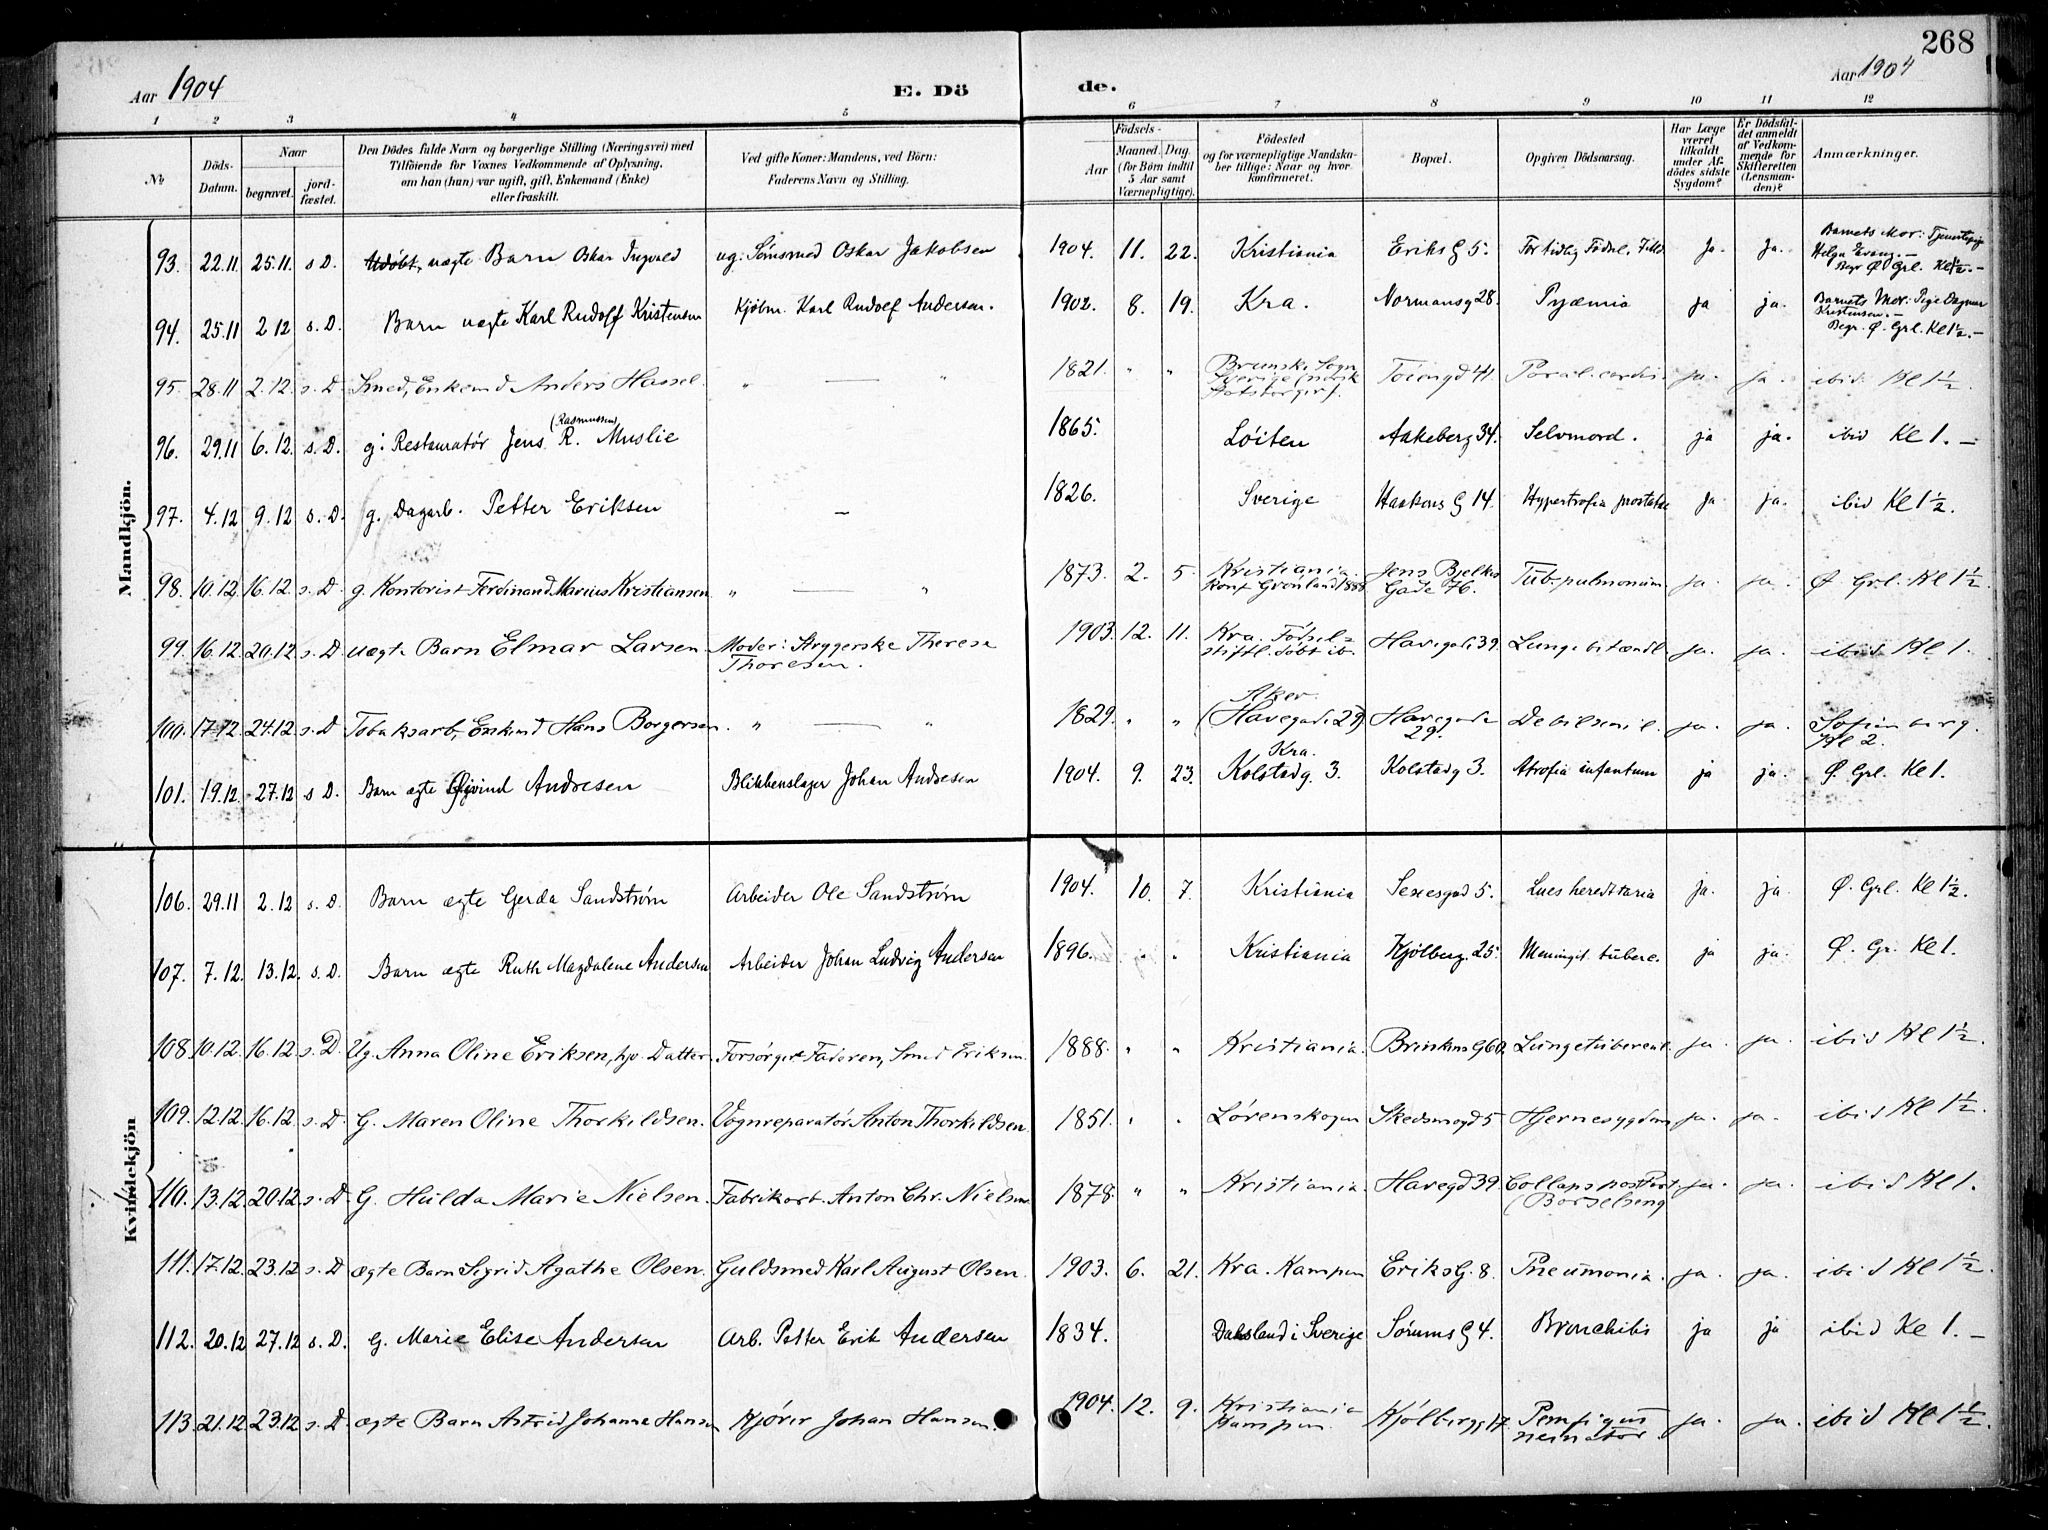 268
Aar 1904
E. Dö
de.
Aar 1904
1 2 3 4 5 6 7 8 9 10 11 12
No
Döds-Datum.
Naar
begravet.
jord-fæstet.
Den Dödes fulde Navn og borgerlige Stilling (Næringsvei) med
Tilföiende for Voxnes Vedkommende af Oplysning,
om han (hun) var ugift, gift, Enkemand (Enke)
eller fraskilt.
Ved gifte Koner: Mandens, ved Börn:
Faderens Navn og Stilling.
Födsels-
Aar
Maaned. Dag.
(for Börn indtil
5 Aar samt
Værnepligtige).
Födested
og for værnepligtige Mandska-
ber tillige: Naar og hvor
konfirmeret.
Bopæl.
Opgiven Dödsaarsag.
Har Læge
været
tilkaldt
under Af-
dödes sidste
Sygdom?
Er Dödsfal-
det anmeldt
af Vedkom-
mende for
Skifteretten
(Lensman-
den)?
Anmærkninger.
Mandkjön.
93. 22.11 25.11. s.D. Udøbt, uægte Barn Oskar Ingvald ug. Sømsmed Oskar Jakobsen 1904. 11. 22. Kristiania Eriks G 5. For tidlig Födsel. ja. ja. Barnets Mor: Tjenestepige
Helga Evang. –
Begr Ø Grl. Kl 1½. –
94. 25.11 2.12 s.D. Barn uægte Karl Rudolf Kristensen Kjøbm. Karl Rudolf Andersen. 1902. 8. 19. Kra. Normansg 28. Pyæmia ja ja. Barnets Mor: Pige Dagmar
Kristensen. –
Begr. Ø. Grl. Kl 1½. –
95. 28.11 2.12. s.D Smed, Enkemd Anders Hassel. " — " 1821. " " Brunsk. Sogn
Sverige (norsk
Statsborger). Töiengd 41. Paral. cordis ja. ja. ibid Kl 1½.
96. 29.11 6.12. s.D. g. Restauratör Jens R. (Rasmussen) Muslie 1865. Löiten Aakeberg 34. Selvmord. ja ja. ibid Kl 1. –
97. 4.12 9.12 s.D. g. Dagarb. Petter Eriksen – 1826. Sverige Haakons G 14. Hypertrofia prostatae ja ja. ibid Kl 1½.
98. 10.12. 16.12. s.D. g. Kontorist Ferdinand Marius Kristiansen " — " 1873. 2. 5. Kristiania.
Konf Grönland 1888 Jens Bjelkes
Gade 76. Tub. pulmonum. ja. ja. Ø Grl. Kl 1½.
99. 16.12. 20.12. s.D uægte Barn Elmar Larsen Moder: Strygerske Therese
Thoresen. 1903. 12. 11. Kra. Födsel-
stiftl. döbt ib. Havegade 39. Lungebetændl. ja. ja. ibid Kl 1.
100. 17.12. 24.12. s.D Tobaksarb, Enkemd Hans Borgersen. " — " 1829. " " Aker.
(Havegade 29) Havegade
29. Debil. senil. ja. ja. Sofienberg.
Kl 2.
101. 19.12. 27.12 s.D. Barn ægte Øivind Andresen Blikkenslager Johan Andresen 1904. 9. 23. Kra.
Kolstadg. 3. Kolstadg 3. Atrofia infantum ja ja. Ø. Grl. Kl 1.
Kvindekjön
106. 29.11 2.12 s.D. Barn ægte Gerda Sandström Arbeider Ole Sandström 1904. 10. 7. Kristiania Sexesgad 5. Lues hereditaria ja. ja Ø. Grl. Kl 1½.
107. 7.12. 13.12. s.D. Barn ægte Ruth Magdalene Andersen Arbeider Johan Ludvig Andersen 1896. " " Kristiania Kjölberg. 25. Meningit. tuberc. ja ja. Ø. Gr. Kl 1.
108. 10.12. 16.12. s.D. Ug. Anna Oline Eriksen, hjv. Datter. Forsörget Faderen, Smed Eriksen. 1888. " " Kristiania. Brinkens G 60. Lungetubercul. ja. ja. ibid Kl 1½.
109. 12.12. 16.12. s.D G. Maren Oline Thorkildsen. Vognreparatör Anton Thorkildsen. 1851. " " Lörenskogen Skedsmogd 5 Hjernesygdom ja. ja. ibid Kl 1½.
110. 13.12. 20.12. s.D G. Hulda Marie Nielsen. Fabrikarb. Anton Chr. Nielsen. 1878. " " Kristiania. Havegd 39. Collaps post Part
(Barselseng ja. ja. ibid Kl 1.
111. 17.12. 23.12 s.D ægte Barn Sigrid Agathe Olsen. Guldsmed Karl August Olsen. 1903. 6. 21. Kra. Kampen Eriks G. 8. Pneumonia. ja. ja. ibid Kl 1½.
112. 20.12 27.12 s.D. G. Marie Elise Andersen Arb. Petter Erik Andersen 1834. Dalsland i Sverige Sörums G 4. Bronchitis ja ja ibid Kl 1. –
113. 21.12. 23.12 s.D. ægte Barn Astrid Johanne Hansen Kjörer Johan Hansen. 1904. 12. 9. Kristiania
Kampen. Kjölbergg 17. Pemfigus
neonator. ja. ja. ibid Kl 1½.